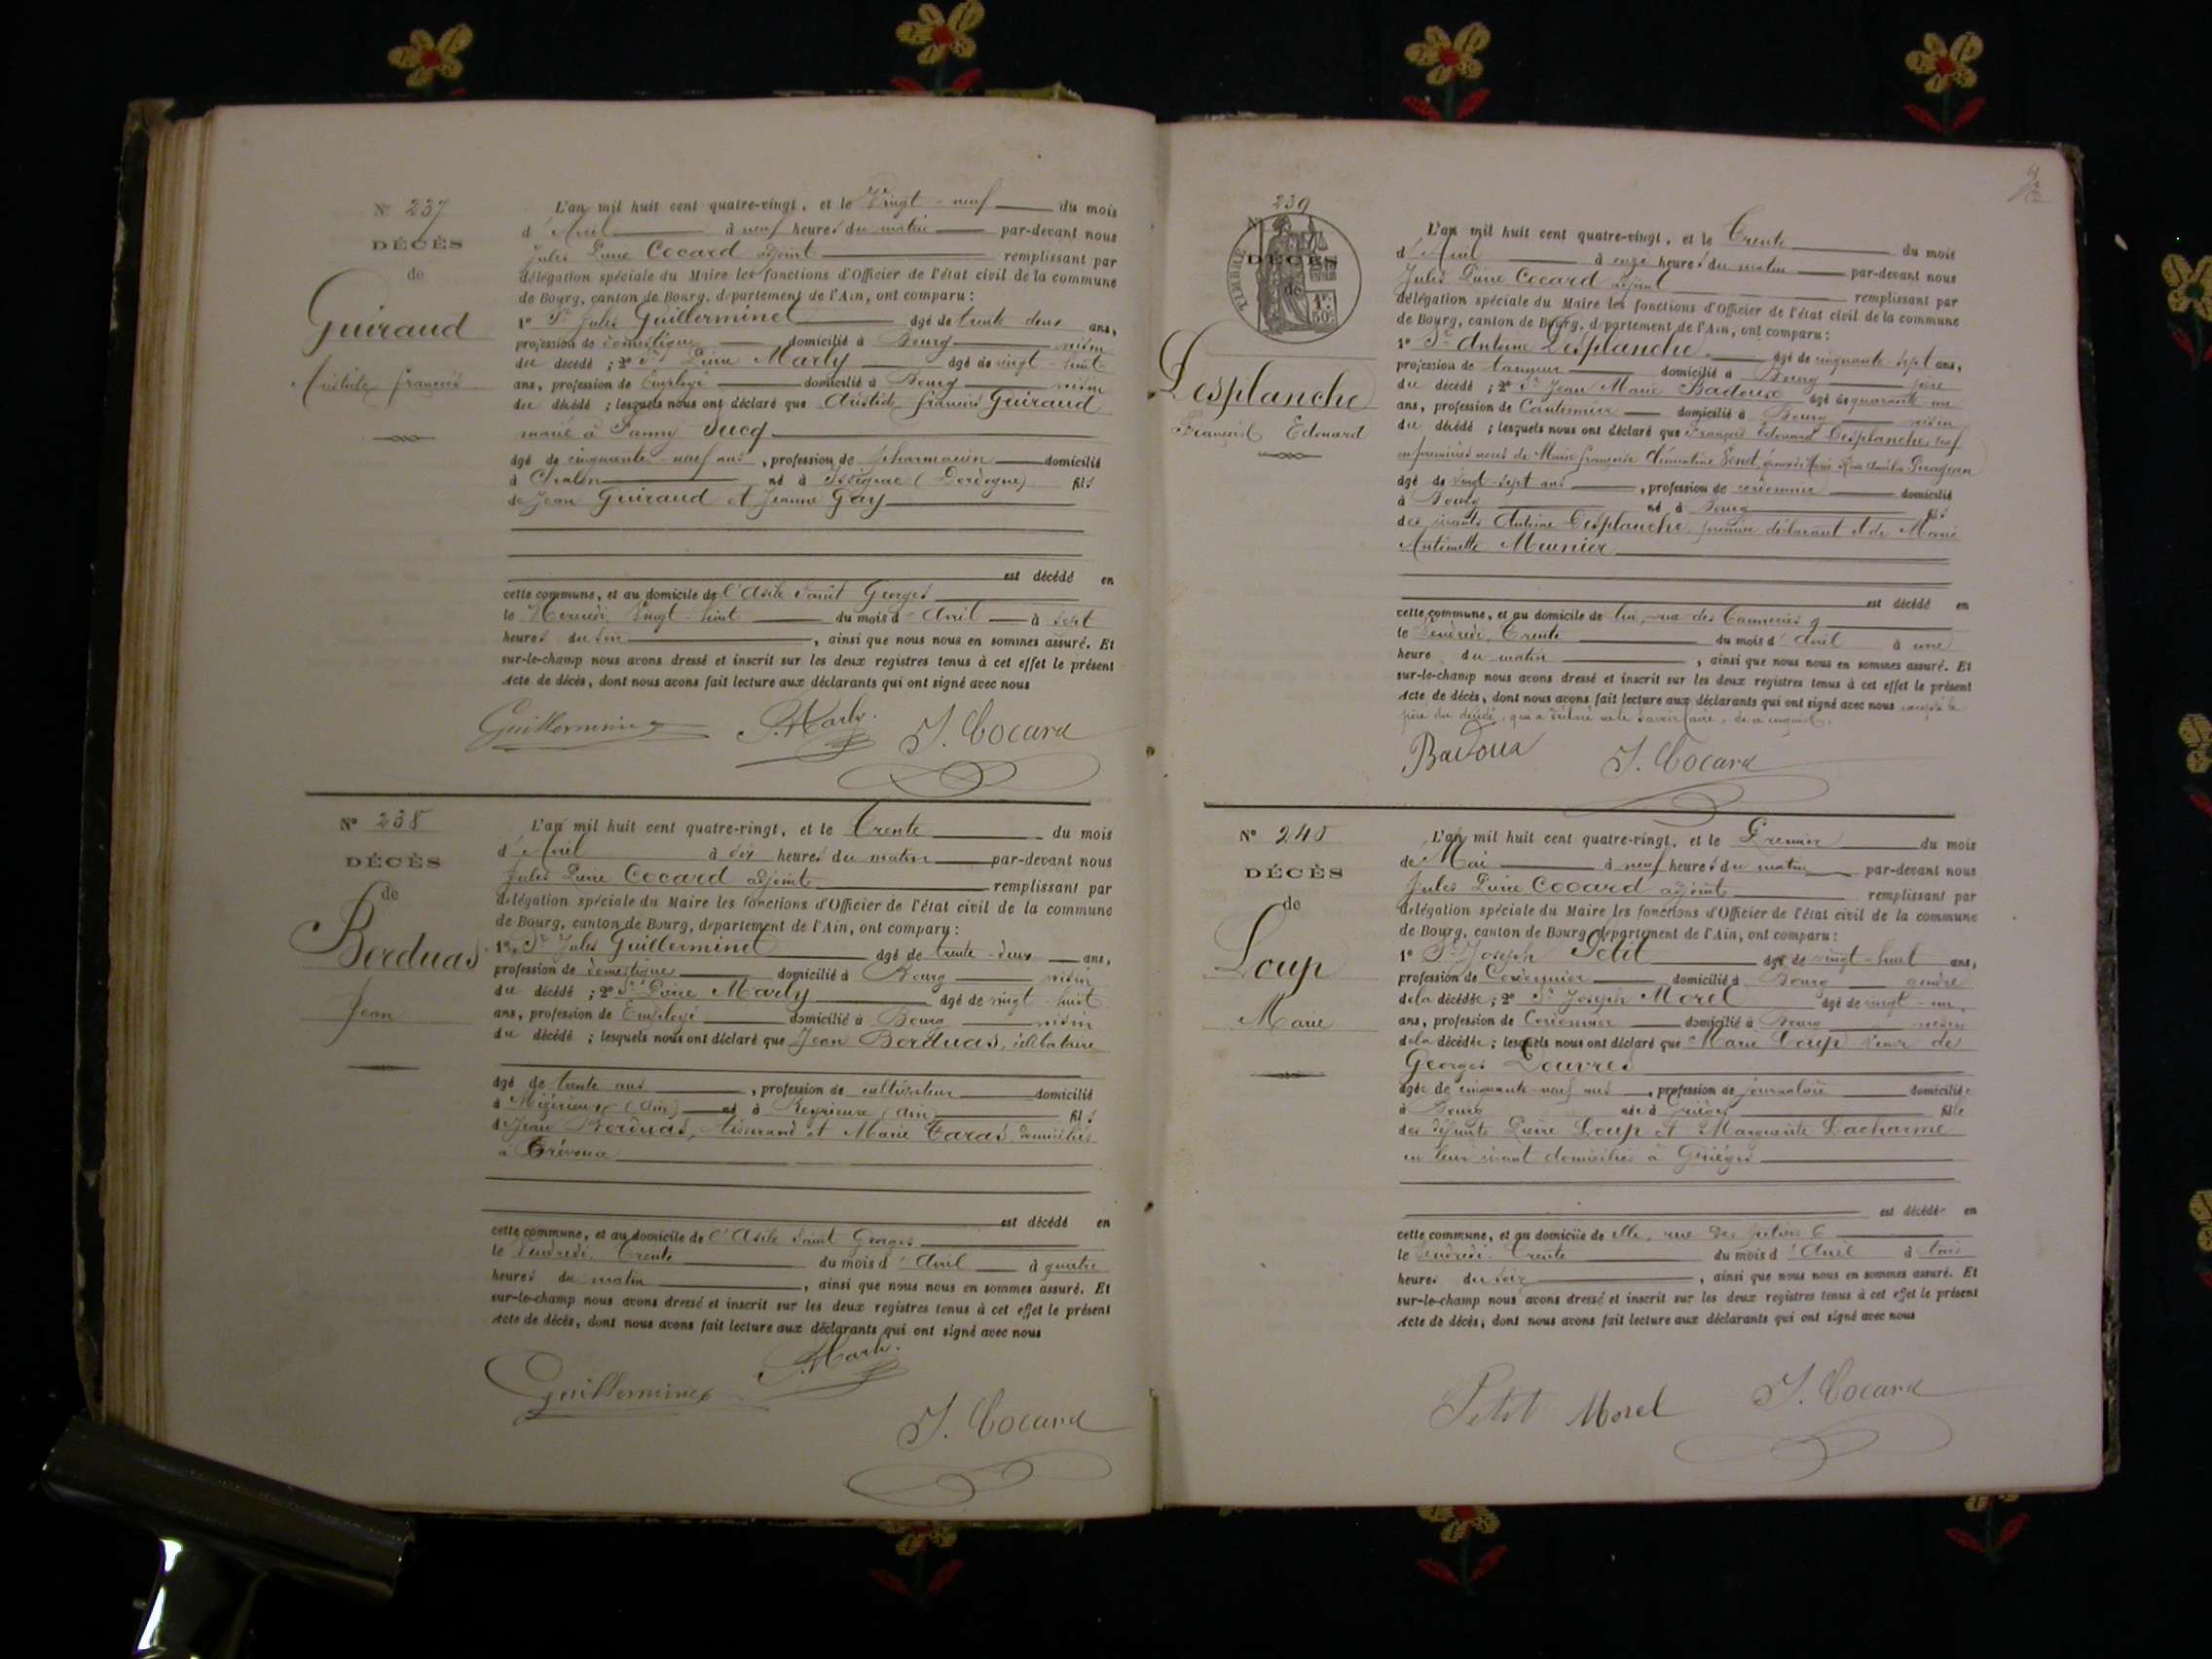 N° 237
DÉCÈS
de
Guiraud
Aristide françois
L'an mil huit cent quatre-vingt, et le Vingt-neuf du mois
d'Avril à neuf heures du matin par-devant nous
Jules Pierre Cocard adjoint remplissant par
délégation spéciale du Maire les fonctions d'Officier de l'état civil de la commune
de Bourg, canton de Bourg, département de l'Ain, ont comparu :
1° Sr Jules Guillerminet âgé de trente-deux ans,
profession de domestique domicilié à Bourg voisin
du décédé ; 2° Sr Pierre Marly âgé de vingt-huit
ans, profession de Employé domicilié à Bourg voisin
du décédé ; lesquels nous ont déclaré que Aristide françois Guiraud
marié à Fanny Sucq
âgé de cinquante-neuf ans, profession de pharmacien domicilié
à Chalon né à Issigeac (Dordogne) fils
de Jean Guiraud et Jeanne Gay
est décédé en
cette commune, et au domicile de l'Asile Saint Georges
le Mercredi Vingt-huit du mois d'Avril à sept
heures du soir, ainsi que nous nous en sommes assuré. Et
sur-le-champ nous avons dressé et inscrit sur les deux registres tenus à cet effet le présent
Acte de décès, dont nous avons fait lecture aux déclarants qui ont signé avec nous
Guillerminet P. Marly J. Cocard
N° 238
DÉCÈS
de
Borduas
Jean
L'an mil huit cent quatre-vingt, et le Trente du mois
d'Avril à dix heures du matin par-devant nous
Jules Pierre Cocard adjoint remplissant par
délégation spéciale du Maire les fonctions d'Officier de l'état civil de la commune
de Bourg, canton de Bourg, département de l'Ain, ont comparu :
1° Sr Jules Guillerminet âgé de trente-deux ans,
profession de domestique domicilié à Bourg voisin
du décédé ; 2° Sr Pierre Marly âgé de vingt-huit
ans, profession de Employé domicilié à Bourg voisin
du décédé ; lesquels nous ont déclaré que Jean Borduas, célibataire
âgé de trente ans, profession de cultivateur domicilié
à Mizérieux (Ain) né à Reyrieux (Ain) fils
de Jean Borduas, tisserand et Marie Taras domiciliés
à Trévoux
est décédé en
cette commune, et au domicile de l'Asile Saint Georges
le Vendredi Trente du mois d'Avril à quatre
heures du matin, ainsi que nous nous en sommes assuré. Et
sur-le-champ nous avons dressé et inscrit sur les deux registres tenus à cet effet le présent
Acte de décès, dont nous avons fait lecture aux déclarants qui ont signé avec nous
Guillerminet P. Marly
J. Cocard
239
N°
TIMBRE
DÉCÈS
de
1F.
50C.
Desplanche
François Edouard
L'an mil huit cent quatre-vingt, et le Trente du mois
d'Avril à onze heures du matin par-devant nous
Jules Pierre Cocard adjoint remplissant par
délégation spéciale du Maire les fonctions d'Officier de l'état civil de la commune
de Bourg, canton de Bourg, département de l'Ain, ont comparu :
1° Sr Antoine Desplanche âgé de cinquante-sept ans,
profession de tanneur domicilié à Bourg père
du décédé ; 2° Sr Jean Marie Badoux âgé de quarante-un
ans, profession de Cantonnier domicilié à Bourg voisin
du décédé ; lesquels nous ont déclaré que François Edouard Desplanche, veuf
en premières noces de Marie françoise Clémentine
âgé de vingt-sept ans, profession de cordonnier domicilié
à Bourg né à Bourg fils
des vivants Antoine Desplanche, premier déclarant et de Marie
Antoinette Meunier
est décédé en
cette commune, et au domicile de lui, rue des Tanneries 9
le Vendredi Trente du mois d'Avril à une
heure du matin, ainsi que nous nous en sommes assuré. Et
sur-le-champ nous avons dressé et inscrit sur les deux registres tenus à cet effet le présent
Acte de décès, dont nous avons fait lecture aux déclarants qui ont signé avec nous excepté le
père du décédé, qui a déclaré ne le savoir faire, de ce enquis.
Badoux J. Cocard
N° 240
DÉCÈS
de
Loup
Marie
L'an mil huit cent quatre-vingt, et le Premier du mois
de Mai à neuf heures du matin par-devant nous
Jules Pierre Cocard adjoint remplissant par
délégation spéciale du Maire les fonctions d'Officier de l'état civil de la commune
de Bourg, canton de Bourg, département de l'Ain, ont comparu :
1° Sr Joseph Petit âgé de vingt-huit ans,
profession de Cordonnier domicilié à Bourg gendre
de la décédée ; 2° Sr Joseph Morel âgé de vingt-un
ans, profession de Cordonnier domicilié à Bourg voisin
de la décédée ; lesquels nous ont déclaré que Marie Loup veuve de
Georges Douvres
âgée de cinquante-neuf ans, profession de journalière domiciliée
à Bourg née à fille
des défunts Pierre Loup et Marguerite Lacharme
en leur vivant domiciliés à Grièges
est décédée en
cette commune, et au domicile de elle, rue des 6
le Vendredi Trente du mois d'Avril à trois
heures du soir, ainsi que nous nous en sommes assuré. Et
sur-le-champ nous avons dressé et inscrit sur les deux registres tenus à cet effet le présent
Acte de décès, dont nous avons fait lecture aux déclarants qui ont signé avec nous
Petit Morel J. Cocard